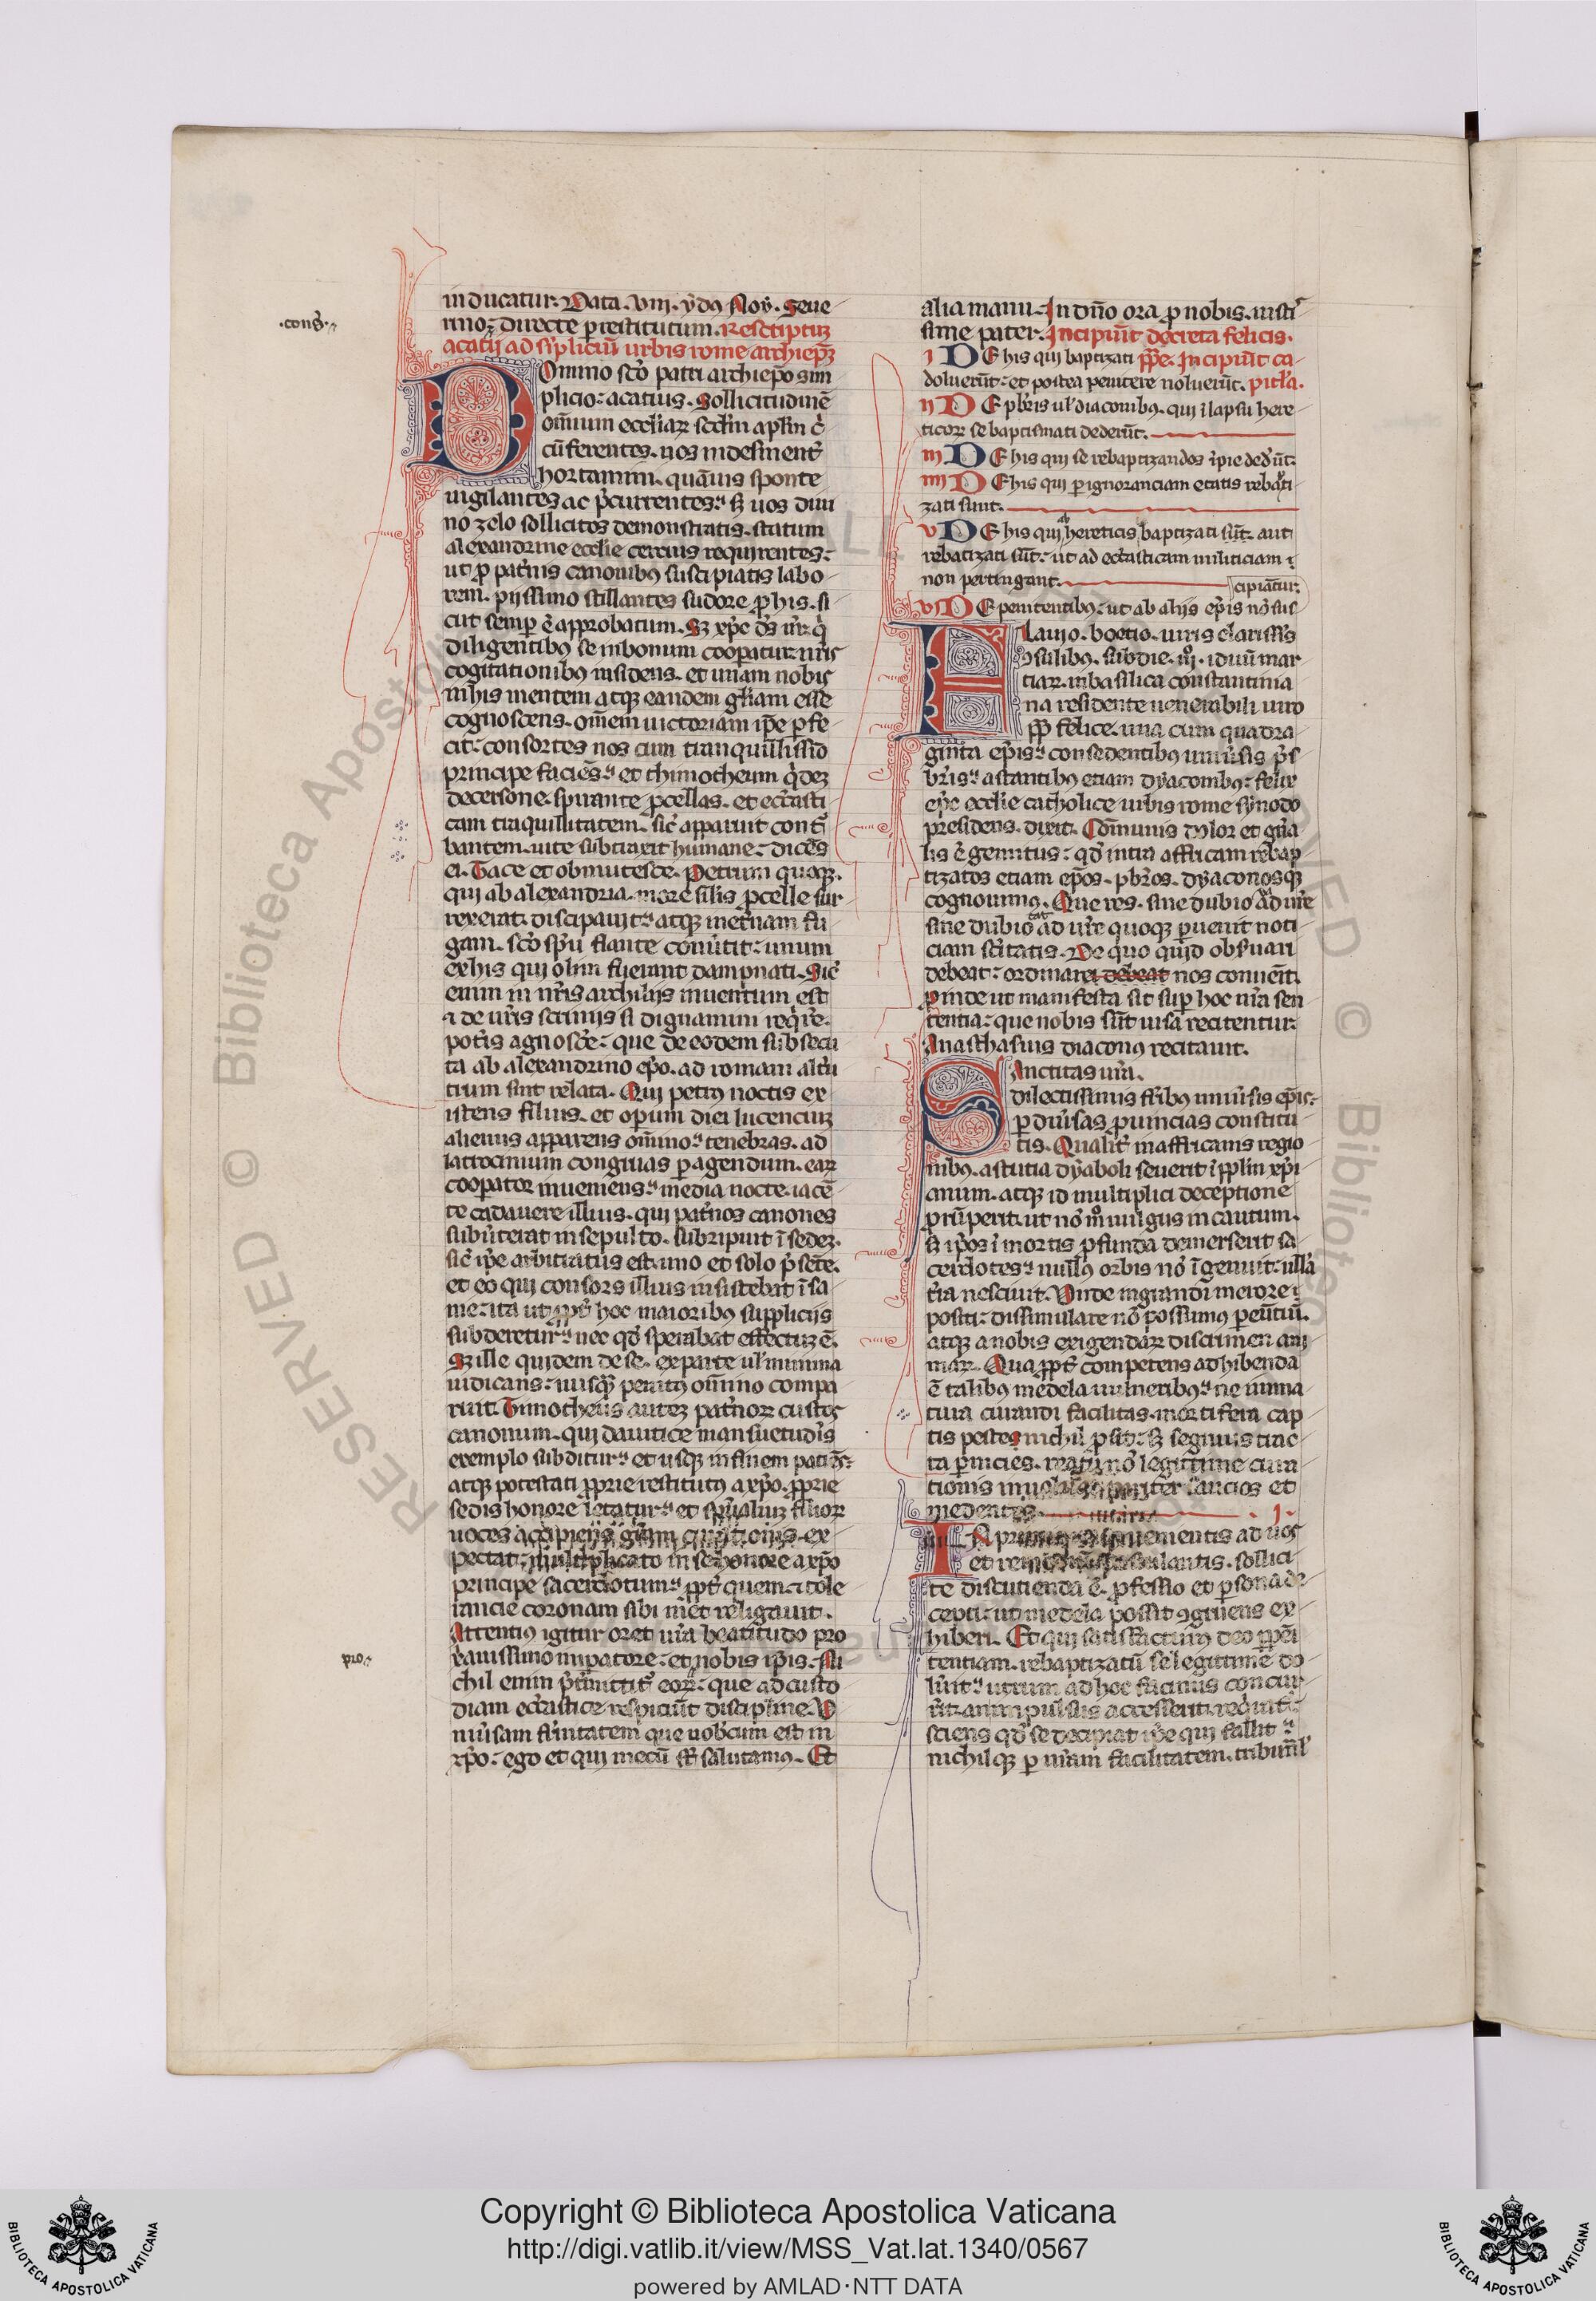 inducatur. Data .viii. ydus Nov̄. Seue
·cons̄·
rinoꝝ directe p restitutum. Rescriptuꝫ
acatij ad sīpliciū urbis rome archiep̄ꝫ
Domino sc̄o patri archiep̄o sim
plicio: acatius. Sollicitudinē
om̄ium ecclīaꝝ scd̄m aplīm c̄
cūferentes. nos indesinent̄
hortamini. quāuis sponte
uigilantes ac p̄currentes. sꝫ uos diui
no zelo sollicitos demonstratis. statum
alexandrine eccl̄ie cercius requirentes.
ut p pat̄nis canonibꝰ suscipiatis labo
rem. pijssimo stillantes sudore p his. si
cut semp ē approbatum. Sꝫ xp̄c ds̄ nr̄ q̇
diligentibꝰ se in bonum coopatur. nr̄is
cogitationibꝰ insidens. et unam nobis
in his mentem atqꝫ eandem gl̄iam esse
cognoscens. om̄em uictoriam ip̄e pfe
cit: consortes nos cum tranquillissīo
principe faciēs. et thimotheum q̇deꝫ
decersone. spirante pcellas. et eccl̄asti
cam traquillitatem. sic̄ apparuit cont̄
bantem. uite subtraxit humane. dicēs
ei. Tace et obmutesce. Petrum quoqꝫ.
qui ab alexandria. more sīlis pcelle sur
rexerat. discipauit. atqꝫ in et̄nam fu
gam. sc̄o sp̄u flante conūtit: unum
ex his qui olim fuerant dampnati. Sic̄
enim in nr̄is archiuijs inuentum est
⁊ de ur̄is scrinijs si dignamini req̇re.
pot̄is agnosc̄e: que de eodem subsecu
ta ab alexandrino ep̄o. ad romam alt̄u
trum sint relata. Qui petrꝰ noctis ex
istens filius. et opum diei lucenciuꝫ
alienus apparens om̄ino. tenebras. ad
latrocinium congruas p agendum. eaꝝ
coopator inueniens. media nocte. iacē
te cadauere illius. qui pat̄nos canones
subūterat insepulto. subripuit ī sedeꝫ.
sic̄ ip̄e arbitratus est. uno et solo p̄sente.
et eo qui consors illius insistebat ī sa
nie. ita ut ppt̄ hoc maioribꝰ supplicijs
subderetur. nec qd̄ sperabat effectuꝫ ē.
Sꝫ ille quidem de se. ex parte ul̄ minima
iudicans. nusqꝫ penitꝰ om̄ino compa
ruit. Timotheus auteꝫ pat̄noꝝ custos
canonum. qui dauitice mansuetud̄is
exemplo subditur. et usqꝫ in finem patiēs.
atqꝫ potestati pprie restitutꝰ a xp̄o. pprie
sedis honore letatur. et sp̄ualiuꝫ filioꝝ
uoces accipiens gr̄am curationis. ex
pectat. multiplicato in se honore a xp̄o
principe sacerdotum. ppt̄ quem ⁊ tole
rancie coronam sibi met religauit.
Attentiꝰ igitur oret ur̄a beatitudo pro
pro
xauissimo impatore. et nobis ip̄is. Ni
chil enim p̄t̄mittit̄ eoꝝ. que ad custo
diam eccl̄astice respiciūt discipline. V
niūsam fr̄nitatem que uobcum est in
xp̄o. ego et qui mecū sꝫ salutamꝰ. Et
alia manu. In dn̄o ora p nobis. iusti
sime pater. Incipiūt decreta felicis.
i DE his qui baptizati pp̄e. Incipiūt ca
doluerūt. et postea penitere noluerūt. pitl̄a.
ii DE pbr̄is ul̄ diaconibꝰ. qui ī lapsu here
ticoꝝ se baptismati dederūt.
iii DE his qui se rebaptizandos īpie ded̄ūt.
iiii DE his qui p ignoranciam etatis rebapti
zati sunt.
v DE his qui ab hereticis baptizati sūt. aut
rebatizati sūt. ut ad eccl̄asticam militiciam ī
non pertingant.
cipiāt̄ur.
vi DE penitentibꝰ. ut ab alijs ep̄is nō sus
Flauio. boetio. uiris clarissīs
ꝯsulibꝰ. sub die .iij. iduū mar
tiaꝝ. in basilica constantinia
na residente uenerabili uiro
pp̄ felice. una cum quadra
ginta ep̄is. consedentibꝰ uniūsis p̄s
br̄is. astantibꝰ etiam dyaconibꝰ. felix
ep̄c eccl̄ie catholice urbis rome synodo
presidens. dixit. Com̄unis dolor et gn̄a
lis ē gemitus. qd̄ intra affricam rebap
tizatos etiam ep̄os. pbr̄os. dyaconosqꝫ
cognouimꝰ. Que res. sine dubio ad ur̄e
sine dubio ad ur̄e quoqꝫ puenit noti
ciam sc̄itatis. De quo quid obseruari
debeat. ordinare debeat nos conuenit.
Pinde ut manifesta sit sup hoc nr̄a sen
tentia. que nobis sūt uisa recitentur.
Anasthasius diaconꝰ recitauit.
Sanctitas ur̄a.
dilectissimis fr̄ibꝰ uniūsis ep̄is.
p diūsas puincias constitu
tis. Qualit̄ in affricanis regio
nibꝰ. astutia dyaboli seuerit ī pplm̄ xp̄i
anum. atqꝫ id multiplici deceptione
prūperit. ut nō mō uulgus incautum.
sꝫ ip̄os ī mortis pfunda demerserit sa
cerdotes. nullꝰ orbis nō īgemuit. ulla
t̄ra nesciuit. Vnde in grandi merore
positi. dissimulare nō possumus peūtiū.
atqꝫ a nobis exigendaꝝ discrimen ani
maꝝ. Qua ppt̄ competens adhibenda
ē talibus medela uulneribꝰ. ne inma
tura curandi facilitas. mortifera cap
tis pestes nichil psit. sꝫ segnius trac
ta pnicies. nō legittime cura
tionis pariter saucios et
medentes. .i.
IN primis uenientis ad uos
et sollici
te discutienda ē. pfessio et psona de
cepti. ut medela possit ꝯgruens ex
hiberi. Et qui satisfacturꝰ deo ppeni
tentiam. rebaptizatū se legittime do
luerit. utrum ad hoc facinus concur
rerit. an impulsus accesserit. requirat.
sciens qd̄ se decipiat ip̄e qui fallit.
nichilqꝫ p nr̄am facilitatem. tribunal̄
Copyright © Biblioteca Apostolica Vaticana
http://digi.vatlib.it/view/MSS_Vat.lat.1340/0567
powered by AMLAD·NTT DATA
BIBLIOTECA APOSTOLICA VATICANA
BIBLIOTECA APOSTOLICA VATICANA